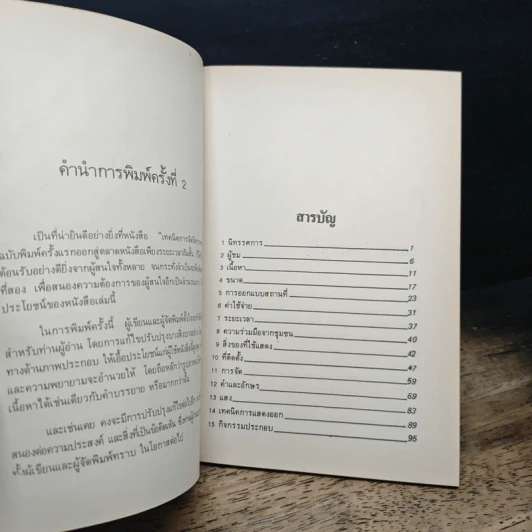 คำนำการพิมพ์ครั้งที่ 2
เป็นที่น่ายินดีอย่างยิ่งที่หนังสือ "เทคนิคการจัดนิทรรศการ
ฉบับพิมพ์ครั้งแรกออกสู่ตลาดหนังสือเพียงระยะเวลาอันสั้น
ต้อนรับอย่างดียิ่งจากผู้สนใจทั้งหลาย จนกระทั่งจำเป็นจะต้อง
ที่สอง เพื่อสนองความต้องการของผู้สนใจอีกเป็นจำนวนมาก
ประโยชน์ของหนังสือเล่มนี้
ในการพิมพ์ครั้งนี้ ผู้เขียนและผู้จัดพิมพ์
สำหรับท่านผู้อ่าน โดยการแก้ไขปรับปรุงบางสิ่งบางอย่าง
ทางด้านภาพประกอบ ให้เอื้อประโยชน์แก่ผู้ใช้หนังสือ
และความพยายามจะอำนวยให้ โดยถือหลักว่า
เนื้อหาได้เช่นเดียวกับคำบรรยาย หรือมากกว่านั้น
และเช่นเคย คงจะมีการปรับปรุงแก้ไขต่อไปอีก
สนองต่อความประสงค์ และสิ่งที่เป็นข้อคิดเห็น
ทั้งผู้เขียนและผู้จัดพิมพ์ทราบ ในโอกาสต่อไป
สารบัญ
1 นิทรรศการ 1
2 ผู้ชม 6
3 เนื้อหา 11
4 ขนาด 17
5 การออกแบบสถานที่ 23
6 ค่าใช้จ่าย 31
7 ระยะเวลา 37
8 ความร่วมมือจากชุมชน 40
9 สิ่งของที่ใช้แสดง 42
10 ที่ติดตั้ง 47
11 การจัด 59
12 คำและอักษร 69
13 แสง 83
14 เทคนิคการแสดงออก 89
15 กิจกรรมประกอบ 95